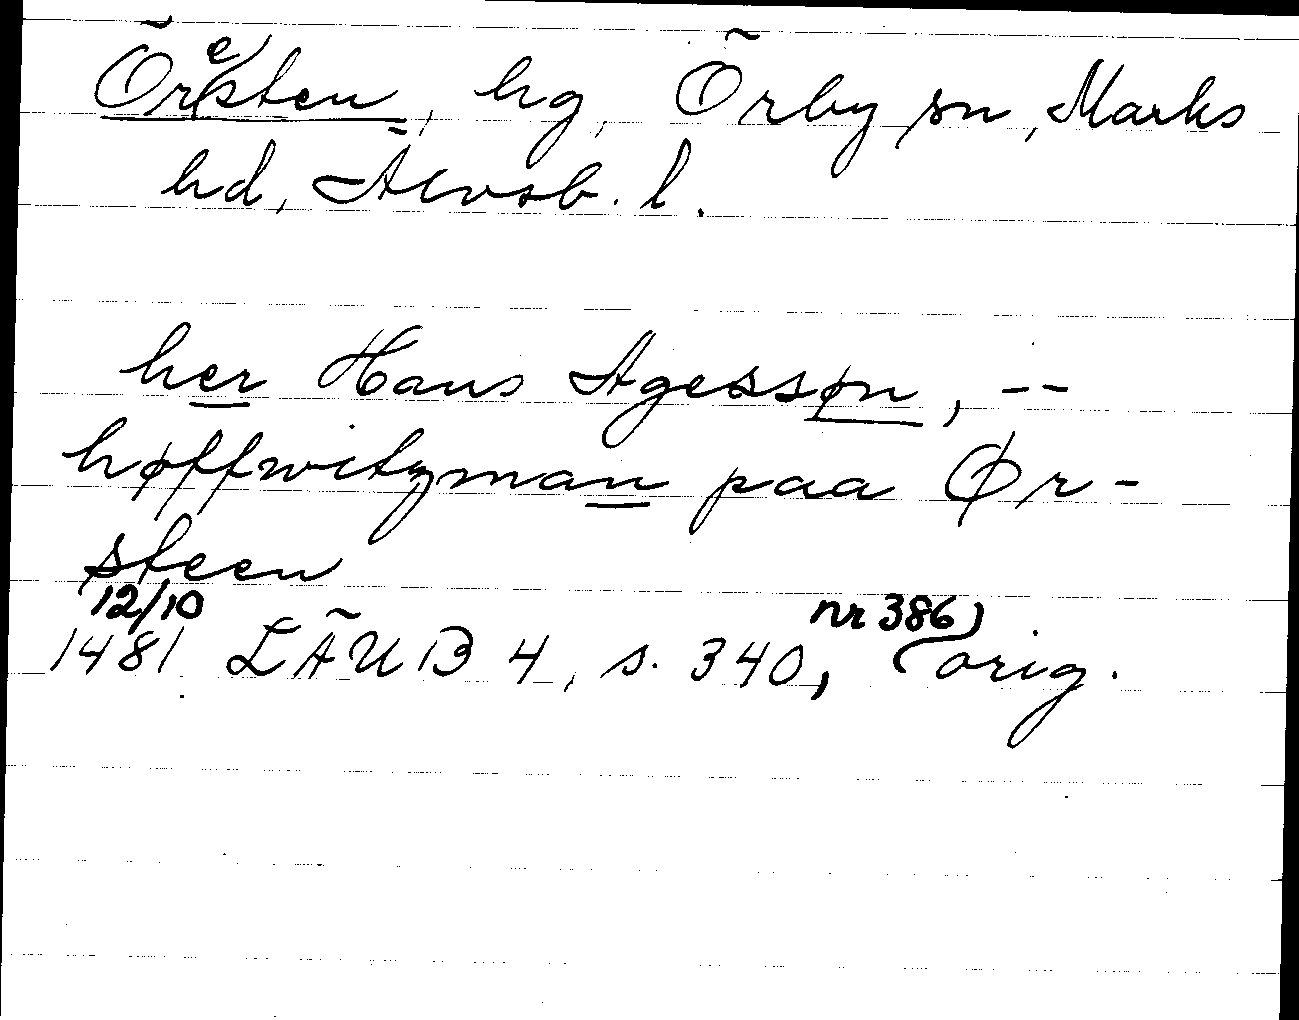 Öresten, hg, Örby sn, Marks
hd, Älvsb. l.
her Hans Agessøn, --
høffwitzman paa Ør-
steen
12/10
1481 LÄUB 4, s. 340, nr 386, orig.